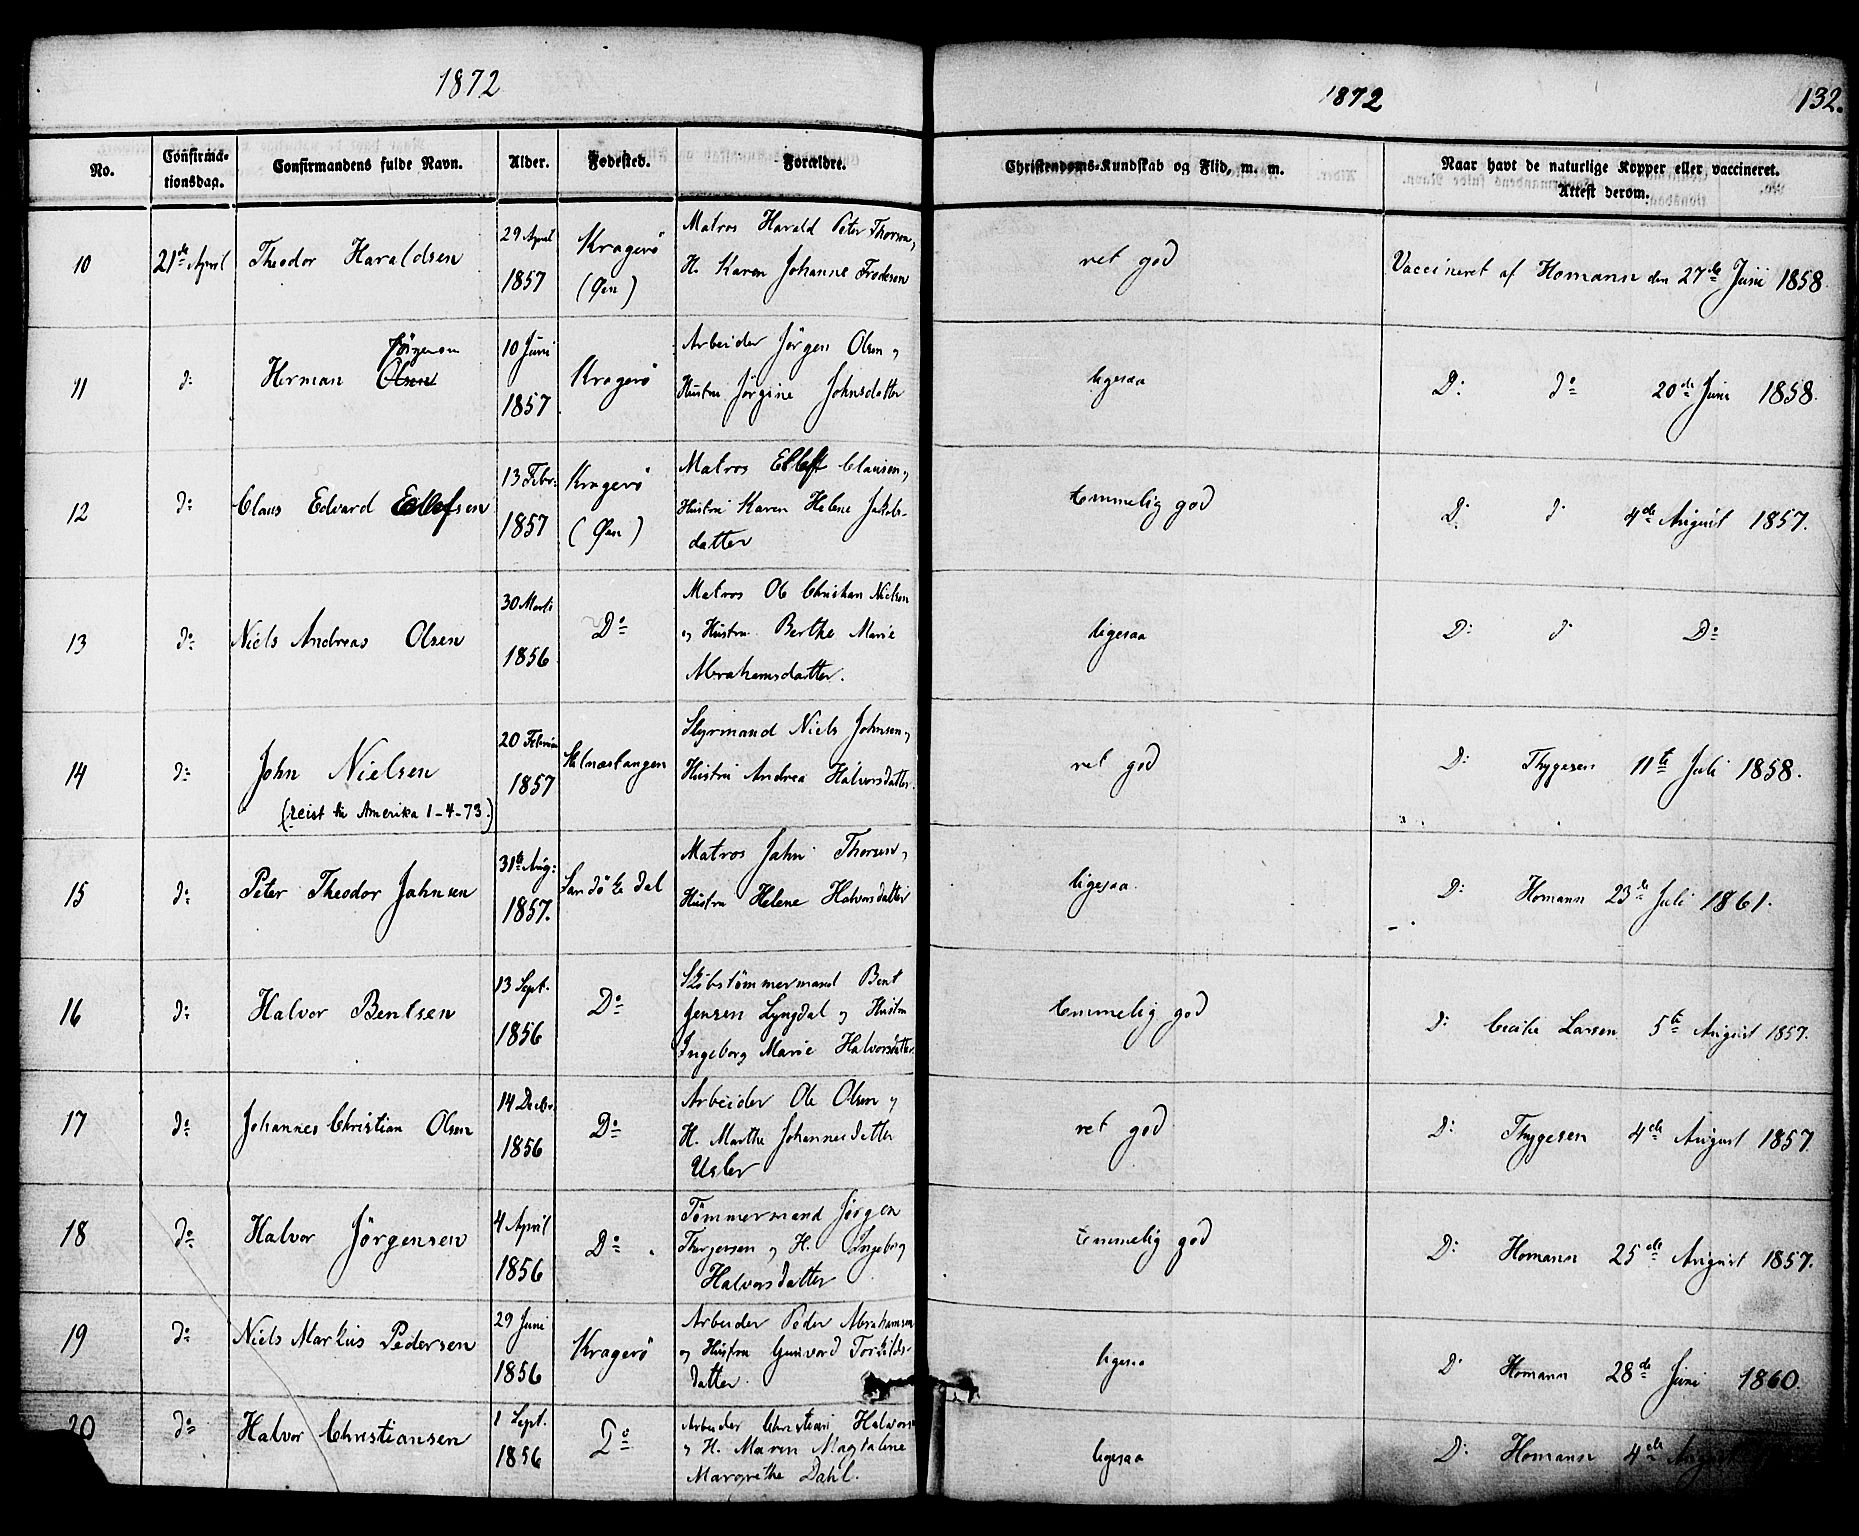 1872
1872
132.
No.
Confirma-
tionsdag.
Confirmandens fulde Navn.
Alder.
Fødested.
Forældre.
Christendoms-Kundskab og Flid, m. m.
Naar havt de naturlige Kopper eller vaccineret.
Attest derom.
10
21de April
Theodor Haraldsen
29 April
1857
Kragerö
(Øen)
Matros Harald Peter Thorsen,
H. Karen Johanne Frodesen
ret god
Vaccineret af Homann den 27de Juni 1858.
11
do
Jörgensen
Herman Olsen
10 Juni
1857
Kragerö
Arbeider Jörgen Olsen og
Hustru Jörgine Johnsdatter
ligesaa
Do do 20de Juni 1858.
12
do
Claus Edvard Ellefsen
13 Febr:
1857
Kragerö
(Øen)
Matros Ellef Clausen og
Hustru Karen Helene Jakobs-
datter
temmelig god
Do do 4de August 1857.
13
do
Niels Andreas Olsen
30 Marts
1856
Do
Matros Ole Christian Nielsen
og Hustru Berthe Marie
Abrahamsdatter.
ligesaa
Do do Do
14
do
John Nielsen
(reist til Amerika 1-4-73.)
20 Februar
1857
Styrmand Niels Johnsen og
Hustru Andrea Halvorsdatter.
ret god
Do Thygesen 11te Juli 1858.
15
do
Peter Theodor Jahnsen
31te Aug:
1857.
Sandökedal
Matros Jahn Thorsen,
Hustru Helene Halvorsdatter
ligesaa.
Do Homann 23de Juli 1861.
16
do
Halvor Bentsen
13 Sept.
1856
Do
Skibstömmermand Bent
Jensen Lyngdal og Hustru
Ingeborg Marie Halvorsdatter
temmelig god
Do Cecilie Larsen 5te August 1857.
17
do
Johannes Christian Olsen
14 Decbr.
1856
Do
Arbeider Ole Olsen og
H. Marthe Johannesdatter
ret god
Do Thygesen 4de August 1857.
18
do
Halvor Jörgensen
4 April
1856
Do
Tömmermand Jörgen
Thorgersen og H. Ingeborg
Halvorsdatter
temmelig god
Do Homann 25de August 1857.
19
do
Niels Markus Pedersen
29 Juni
1856
Kragerö
Arbeider Peder Abrahamsen
og Hustru Gunvord Torkilds-
datter.
ligesaa
Do Homann 28de Juni 1860.
20
do
Halvor Christiansen
1 Sept.
1856
Do
Arbeider Christian Halvors
og H. Maren Magdalene
Margrethe Dahl.
ligesaa
Do Homann 4de August